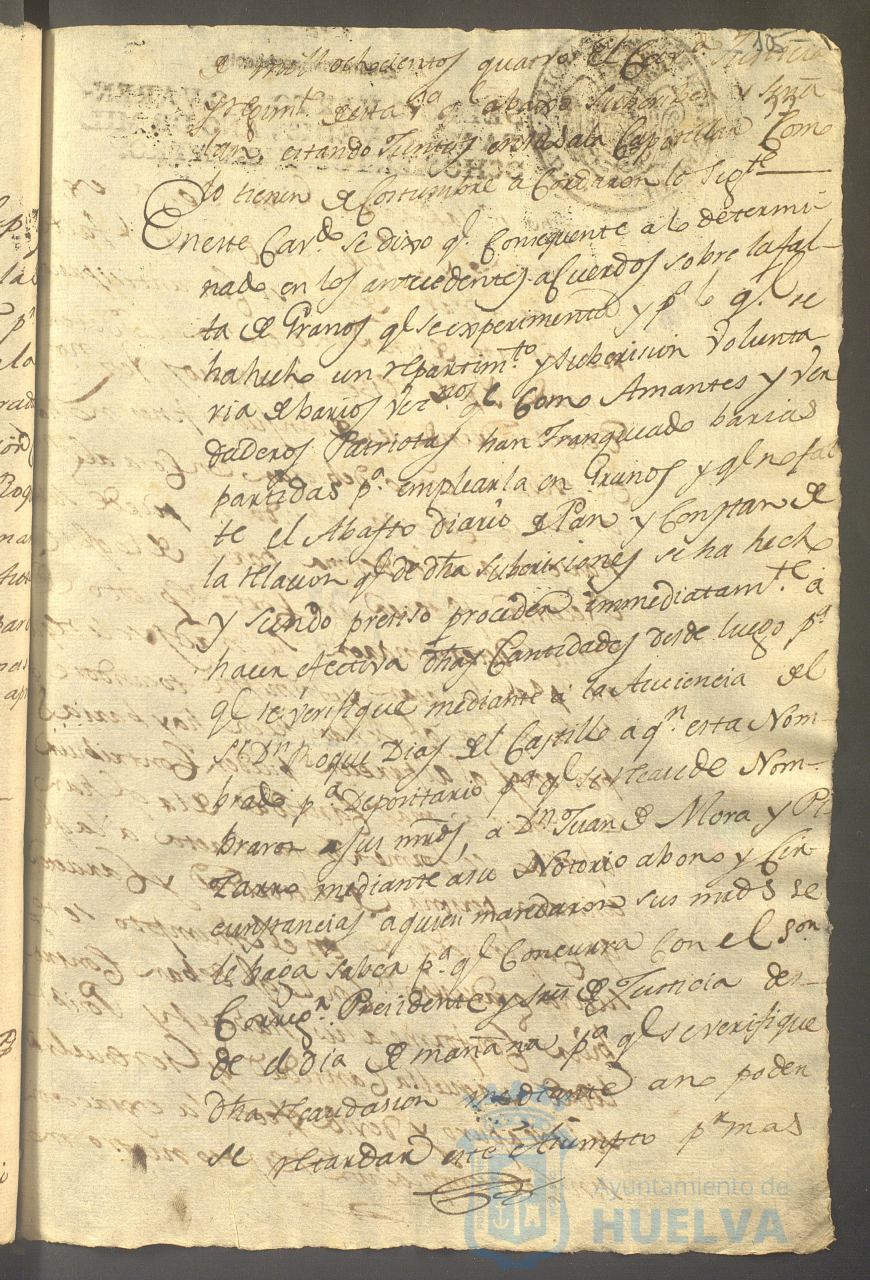 105
de mill ochocientos quatro el Conᵒ Justicia
y regimᵗᵒ de esta Vᵃ q.ᵉ abaxo subcriben y
estando Juntos en su sala Capitular Como
lo tienen de Costumbre acordaron lo Sigᵗᵉ
En este Cavᵈᵒ se dixo qᵉ Consequente a lo determi-
nado en los antecedentes acuerdos sobre la fal-
ta de Granos qᵉ se experimenta y pᵃ lo qᵉ se
ha hecho un repartimᵗᵒ y subcrision Volunta
ria de barios Vecⁿᵒˢ qᵉ Como Amantes y Ver
daderos Patriotas han Franqueado barias
partidas pᵃ emplearla en Granos y qᵉ no fal
te el Abasto diario de Pan y Constan de
la relacion qᵉ de dha subcrisiones se ha hecho
y siendo presiso proceder immediatamᵗᵉ á
hacer efectiva dhas Cantidades desde luego pᵃ
qᵉ se verifique mediante á la Auciencia del
Sʳ Dⁿ Roque Dias del Castillo a qⁿ esta Nom-
brado pᵃ Depositario pᵃ qᵉ se recaude Nom-
braron sus mrds, a Dⁿ Juan de Mora y Pi
zarro mediante a su Notorio abono y Cir
cunstancias a quien mandaron sus mrds se
le haga saber pᵃ qᵉ Concurra Con el Sᵒʳ
Corregᵒʳ Presidente y Sres de Justicia des-
de el dia de mañana pᵃ qᵉ se verifique
dha recaudasion mediante a no poder
se retardar este asumpto pʳ mas
Ayuntamiento de
HUELVA